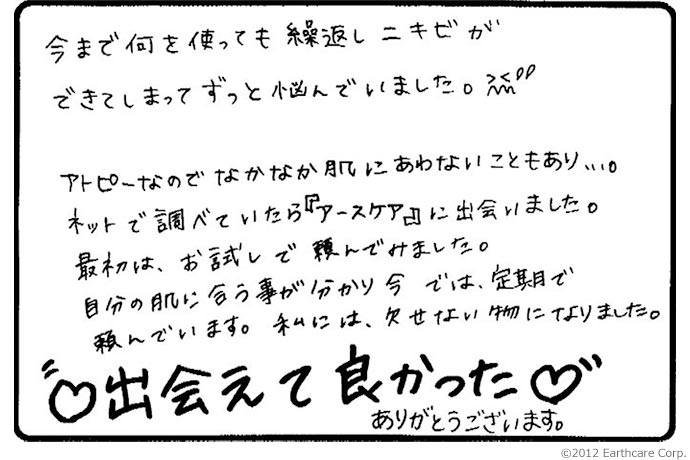 今まで何を使っても繰返しニキビが
できてしまってずっと悩んでいました。
アトピーなのでなかなか肌にあわないこともあり…。
ネットで調べていたら『アースケア』に出会いました。
最初は、お試しで頼んでみました。
自分の肌に合う事が分かり今では、定期で
頼んでいます。私には、欠せない物になりました。
♡出会えて良かった♡
ありがとうございます。
©2012 Earthcare Corp.